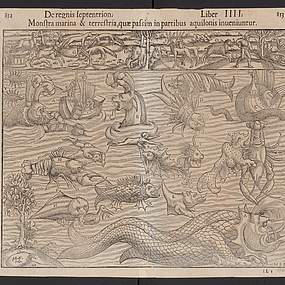 852 De regnis septentrion. Liber IIII. 853
Monstra marina & terrestria, quæ passim in partibus aquilonis inueniuntur.